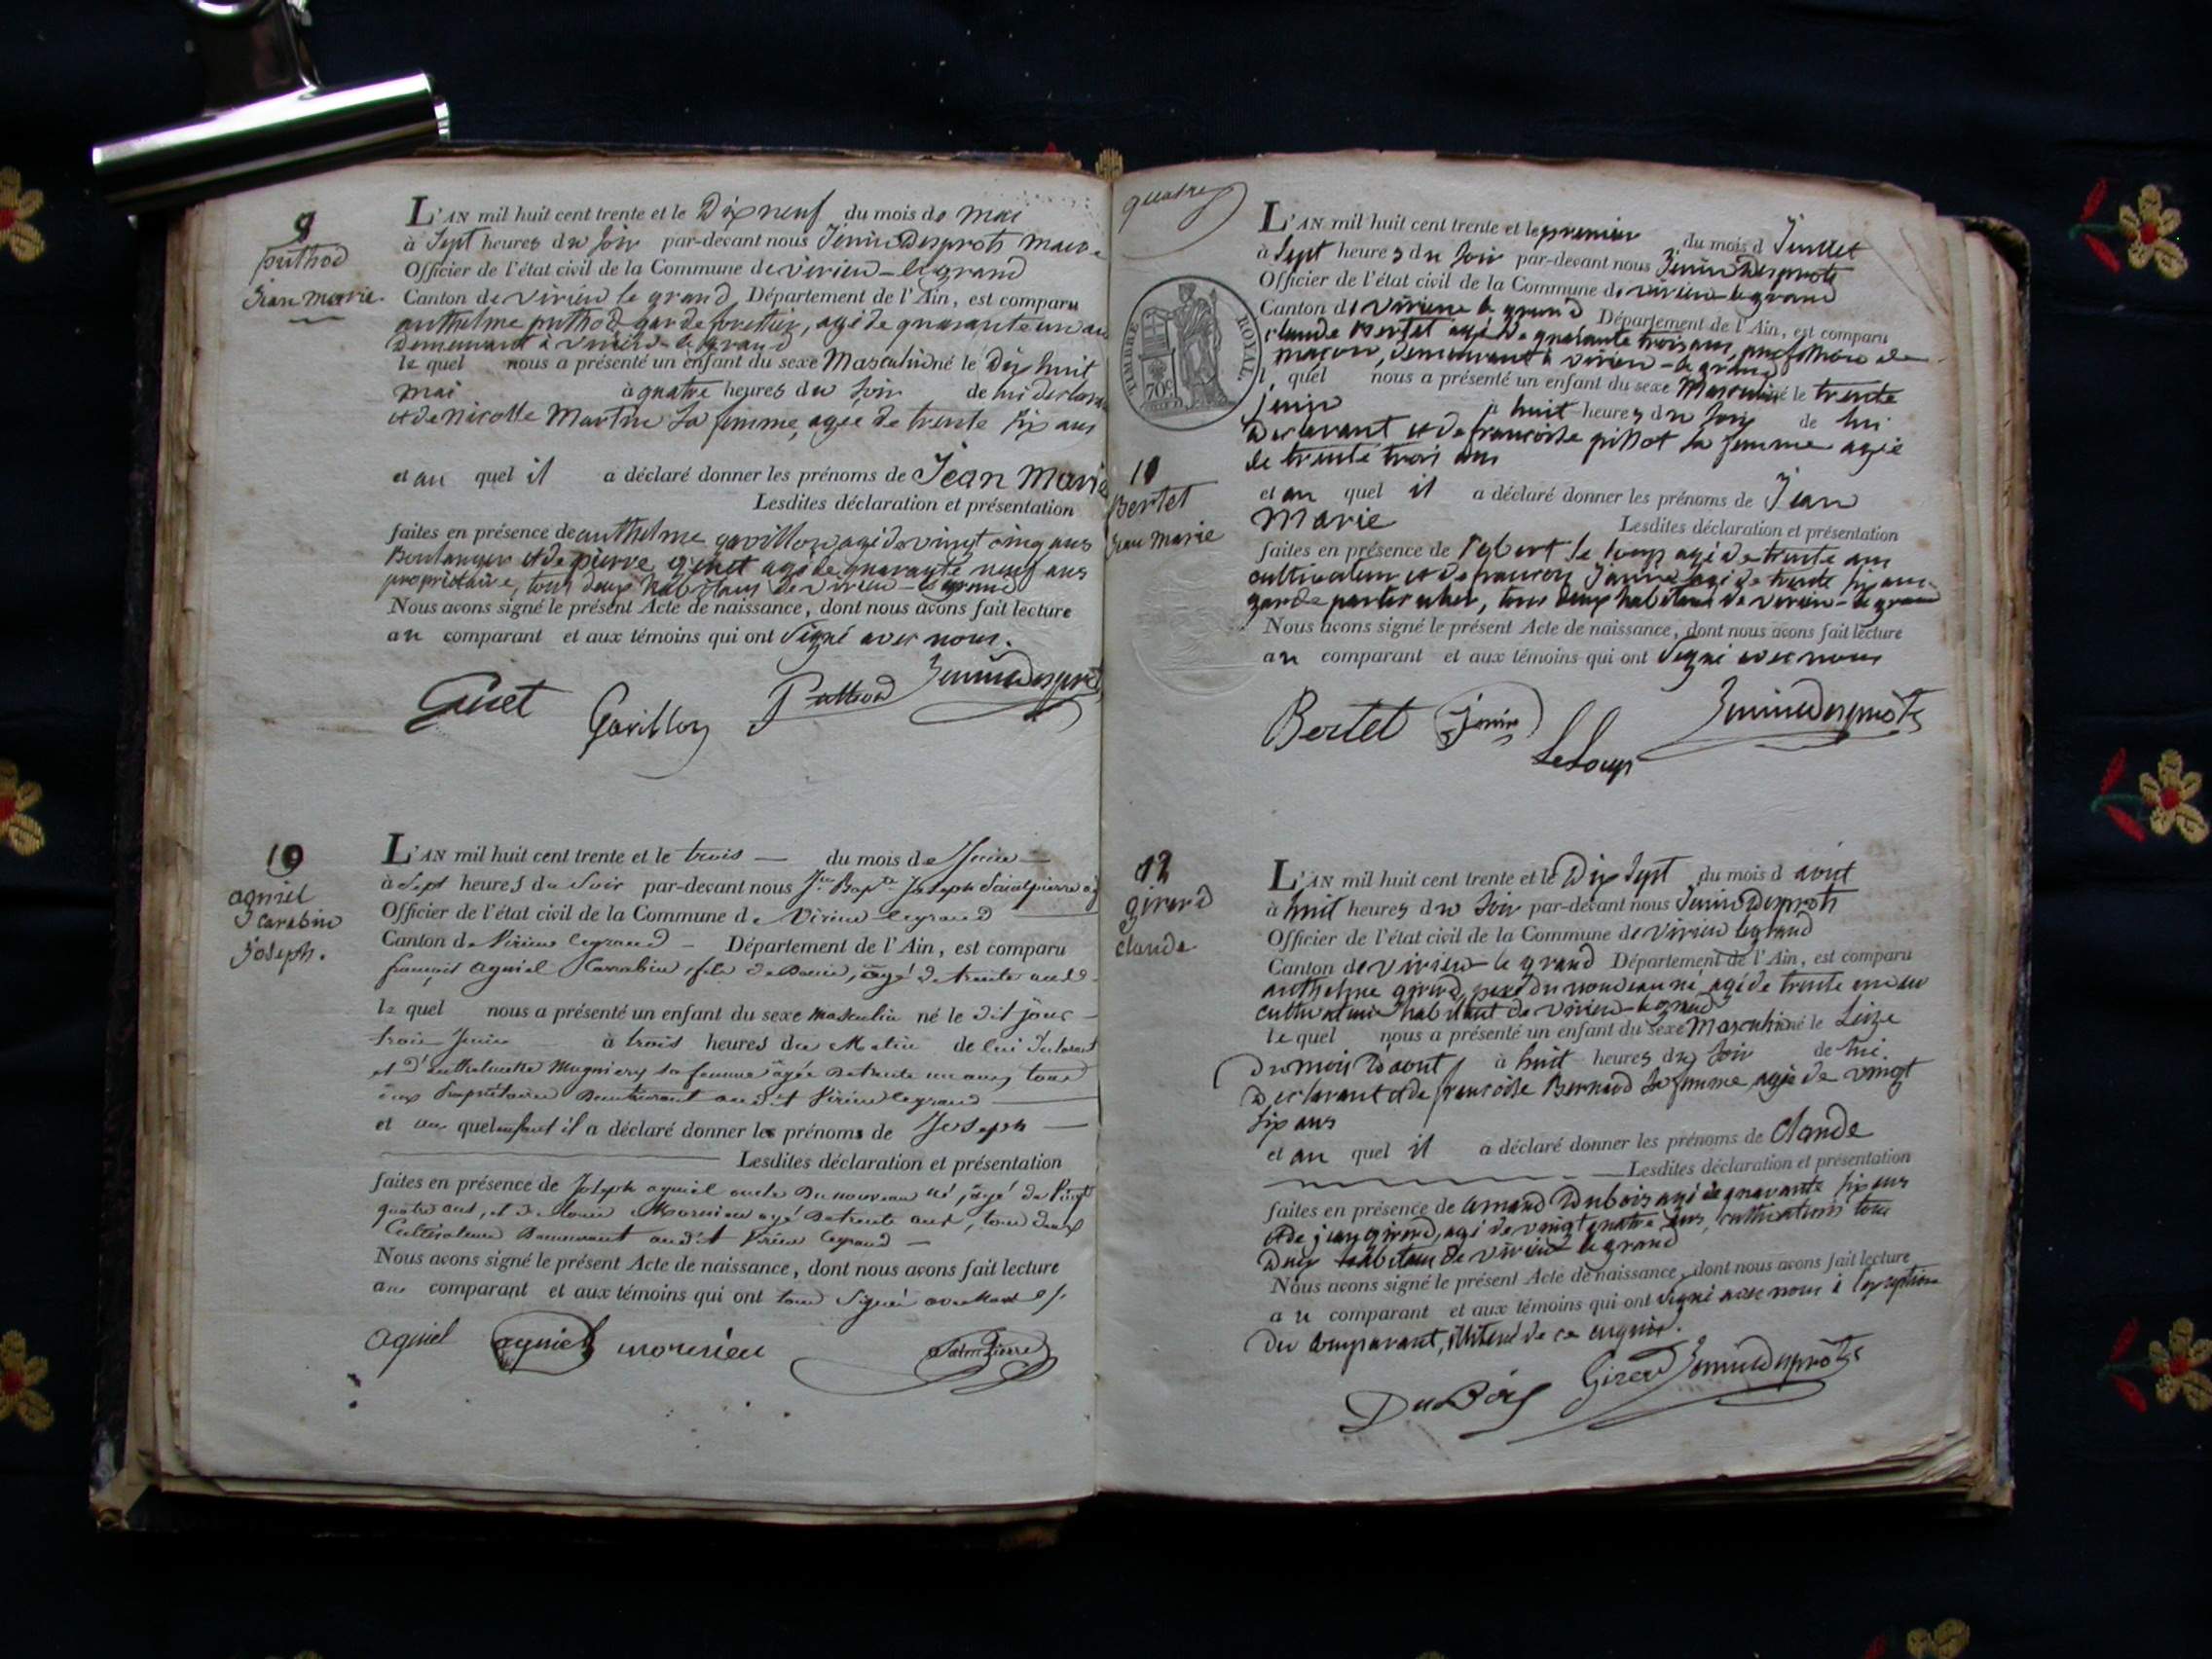 9
puthod
Jean marie
L'AN mil huit cent trente et le Dix neuf du mois de mai
à Sept heures du Soir par-devant nous Jenin Desprots maire
Officier de l'état civil de la Commune de virieu-le grand
Canton de virieu le grand Département de l'Ain, est comparu
anthelme puthod garde forestier, agé de quarante un ans
demeurant à virieu-le grand
le quel nous a présenté un enfant du sexe Masculin né le Dix huit
mai à quatre heures du Soir de lui declarant
et de Nicolle Martin Sa femme, agée de trente Six ans
et au quel il a déclaré donner les prénoms de Jean Marie
Lesdites déclaration et présentation
faites en présence de anthelme gavillon agé de vingt cinq ans
Boulanger et de pierre guet agé de quarante neuf ans
propriétaire, tous deux habitans de virieu-le grand
Nous avons signé le présent Acte de naissance, dont nous avons fait lecture
au comparant et aux témoins qui ont Signé avec nous.
Guet Gavillon Puthod Jenin Desprots
10
agniel
Scarabin
Joseph.
L'AN mil huit cent trente et le trois du mois de Juin
à Sept heures du Soir par-devant nous Jn Bapte Joseph Saintpierre adj
Officier de l'état civil de la Commune de Virieu legrand
Canton de Virieu legrand Département de l'Ain, est comparu
françois agniel Scarrabin, âgé de trente ans
le quel nous a présenté un enfant du sexe masculin né le dit jour
trois Juin à trois heures du Matin de lui déclarant
et d'anthelmette Magniery sa femme âgée de trente un ans, tous
deux Propriétaires Demeurant audit Virieu legrand
et au quel enfant il a déclaré donner les prénoms de Joseph
Lesdites déclaration et présentation
faites en présence de Joseph agniel oncle du nouveau né, âgé de Vingt
quatre ans, et de Louis Mornieu agé de trente ans, tous deux
Cultivateurs Demeurant audit Virieu legrand
Nous avons signé le présent Acte de naissance, dont nous avons fait lecture
au comparant et aux témoins qui ont tous Signé avec nous
agniel agniel mornieu SaintPierre
quatre
TIMBRE ROYAL.
70c
11
Bertet
Jean marie
L'AN mil huit cent trente et le premier du mois d Juillet
à Sept heures du Soir par-devant nous Jenin Desprots
Officier de l'état civil de la Commune de virieu-le grand
Canton de virieu le grand Département de l'Ain, est comparu
claude Bertet agé de quarante trois ans, profession de
maçon, demeurant à virieu-le grand
l quel nous a présenté un enfant du sexe Masculin né le trente
juin à huit heures du Soir de lui
Declarant et de francoise pillot Sa femme agée
de trente trois ans
et au quel il a déclaré donner les prénoms de Jean
Marie Lesdites déclaration et présentation
faites en présence de le loup agé de trente ans
cultivateur et de francois Janin agé de trente six ans
garde particulier, tous deux habitans de virieu-le grand
Nous avons signé le présent Acte de naissance, dont nous avons fait lecture
au comparant et aux témoins qui ont Signé avec nous
Bertet Janin LeLoup Jenin Desprots
12
girard
claude
L'AN mil huit cent trente et le Dix Sept du mois d aout
à huit heures du Soir par-devant nous Jenin Desprots
Officier de l'état civil de la Commune de virieu legrand
Canton de virieu-le grand Département de l'Ain, est comparu
anthelme girard, pere du nouveau né, agé de trente un an
cultivateur habitant de virieu-le grand
le quel nous a présenté un enfant du sexe Masculin né le Seize
Du mois d'aout à huit heures du Soir de lui
Declarant et de francoise Bernard Sa femme agée de vingt
Six ans
et au quel il a déclaré donner les prénoms de claude
Lesdites déclaration et présentation
faites en présence de amand Dubois agé de quarante six ans
et de jean girard, agé de vingt quatre ans, cultivateurs tous
Deux habitans de virieu le grand
Nous avons signé le présent Acte de naissance, dont nous avons fait lecture
au comparant et aux témoins qui ont Signé avec nous à l'exception
Du comparant, illitéré de ce enquis.
DuBois Girard Jenin Desprots